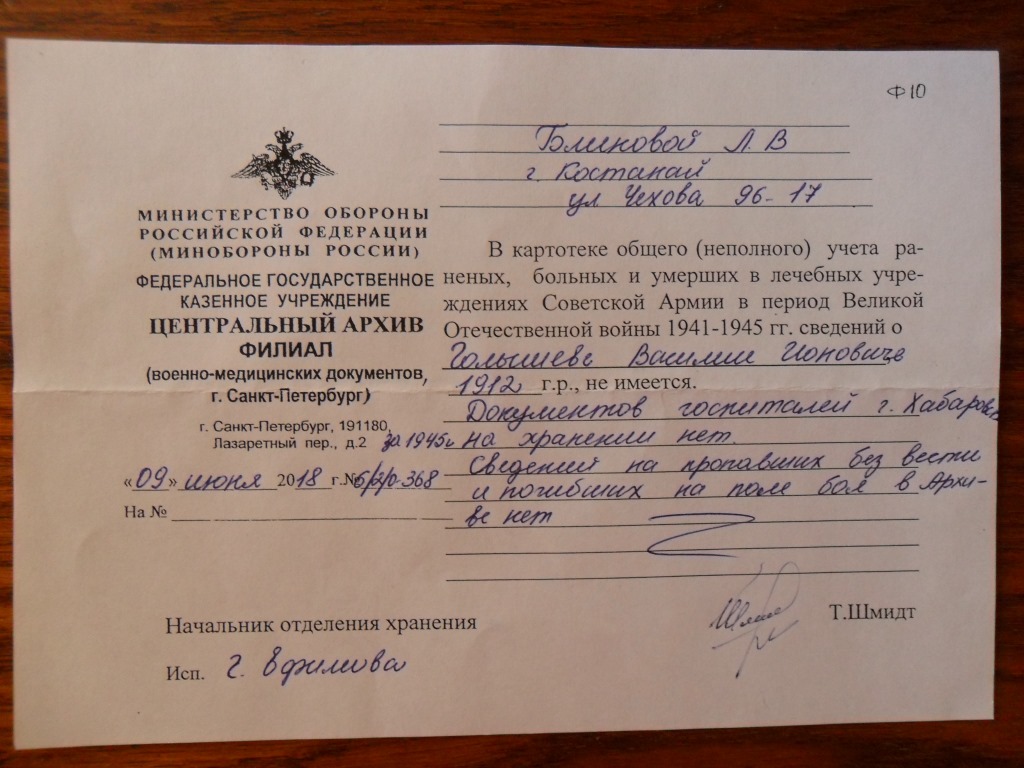 Ф 10
Блиновой Л. В
г. Костанай
ул Чехова 96-17
МИНИСТЕРСТВО ОБОРОНЫ
РОССИЙСКОЙ ФЕДЕРАЦИИ
(МИНОБОРОНЫ РОССИИ)
ФЕДЕРАЛЬНОЕ ГОСУДАРСТВЕННОЕ
КАЗЕННОЕ УЧРЕЖДЕНИЕ
ЦЕНТРАЛЬНЫЙ АРХИВ
ФИЛИАЛ
(военно-медицинских документов,
г. Санкт-Петербург)
г. Санкт-Петербург, 191180,
Лазаретный пер., д.2
«09» июня 2018 г.№ 6/2/0-368
На №
В картотеке общего (неполного) учета ра-
неных, больных и умерших в лечебных учре-
ждениях Советской Армии в период Великой
Отечественной войны 1941-1945 гг. сведений о
Голышеве Василии Ионовиче
1912 г.р., не имеется.
Документов госпиталей г. Хабаровск
за 1945г на хранении нет.
Сведений на пропавших без вести
и погибших на поле боя в Архи-
ве нет
Начальник отделения хранения
Т.Шмидт
Исп. Г. Ефимова